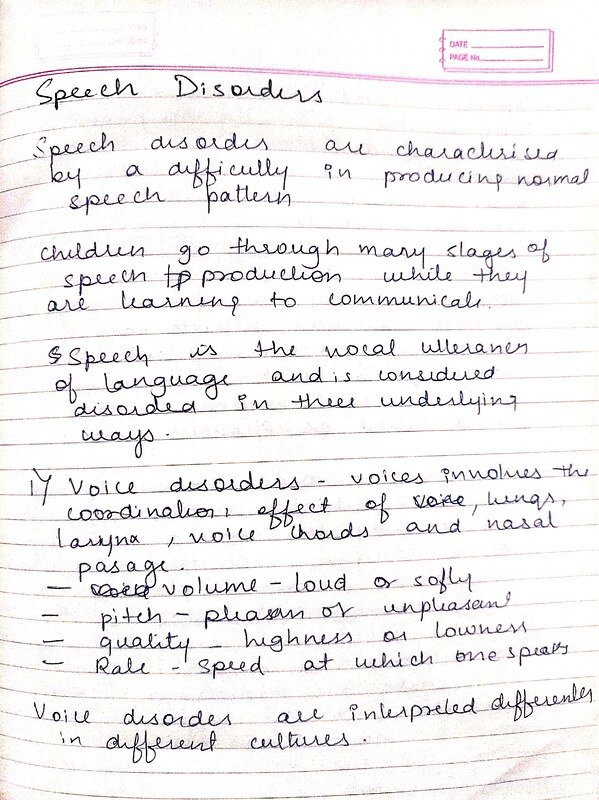 DATE
PAGE No.
Speech Disorders
Speech disorder are characterised
by a difficully in producing normal
speech pattern
Children go through many stages of
speech production while they
are learning to communicate.
Speech is the vocal utterances
of language and is considered
disorded in three underlying
ways.
1) Voice disorders - voices involves the
coordination, effect of voice, lungs,
larynx, voice chords and nasal
pasage.
- volume - loud or softly
- pitch - pleasan or unpleasant
- quality - highness or lowness
- Rate - speed at which one speaks
Voice disorder are interpreted differenter
in different cultures.